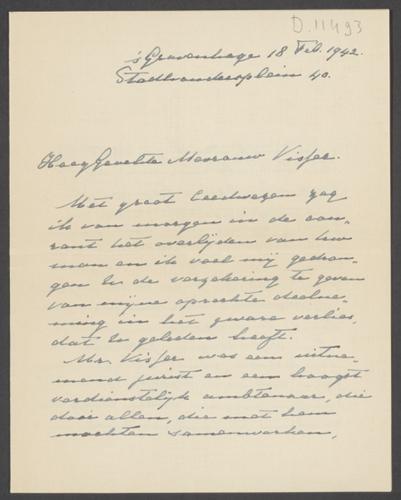 D.11493
's Gravenhage 18 Feb. 1942.
Stadhoudersplein 40.
Hoog Geachte Mevrouw Visser.
Met groot leedwezen zag
ik van morgen in de cou-
rant het overlijden van Uw
man en ik voel mij gedron-
gen U de verzekering te geven
van mijne oprechte deelne-
ming in het zware verlies,
dat U geleden heeft.
Mr. Visser was een uitne-
mend jurist en een hoogst
verdienstelijk ambtenaar, die
door allen, die met hem
mochten samenwerken,